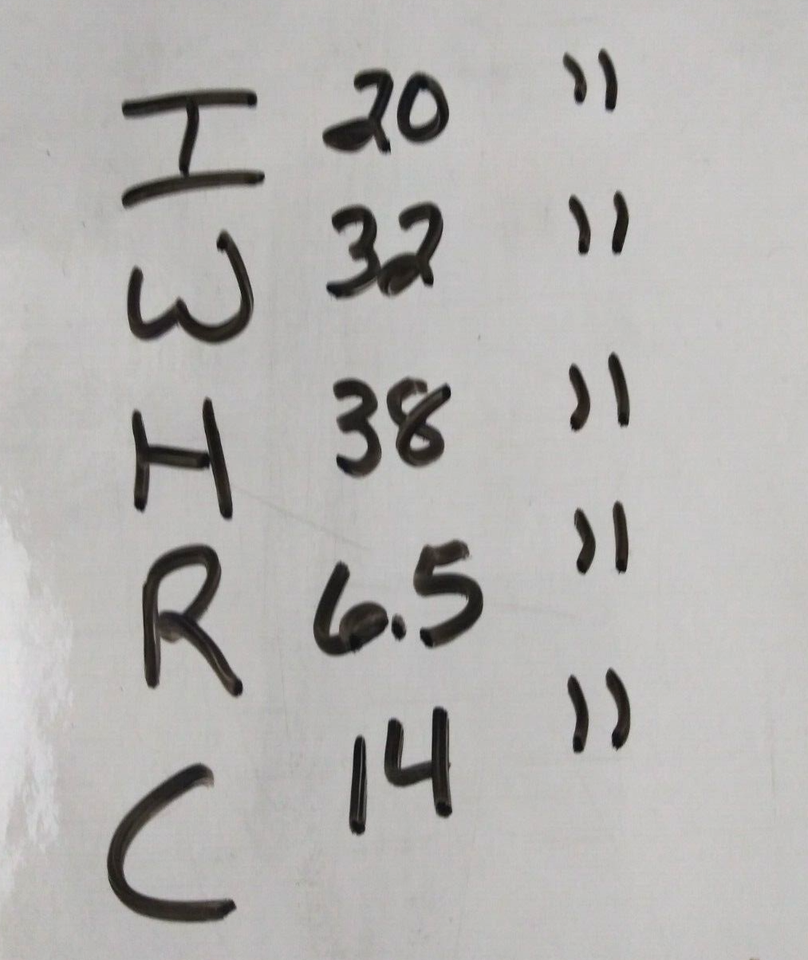 I 20 "
W 32 "
H 38 "
R 6.5 "
C 14 "